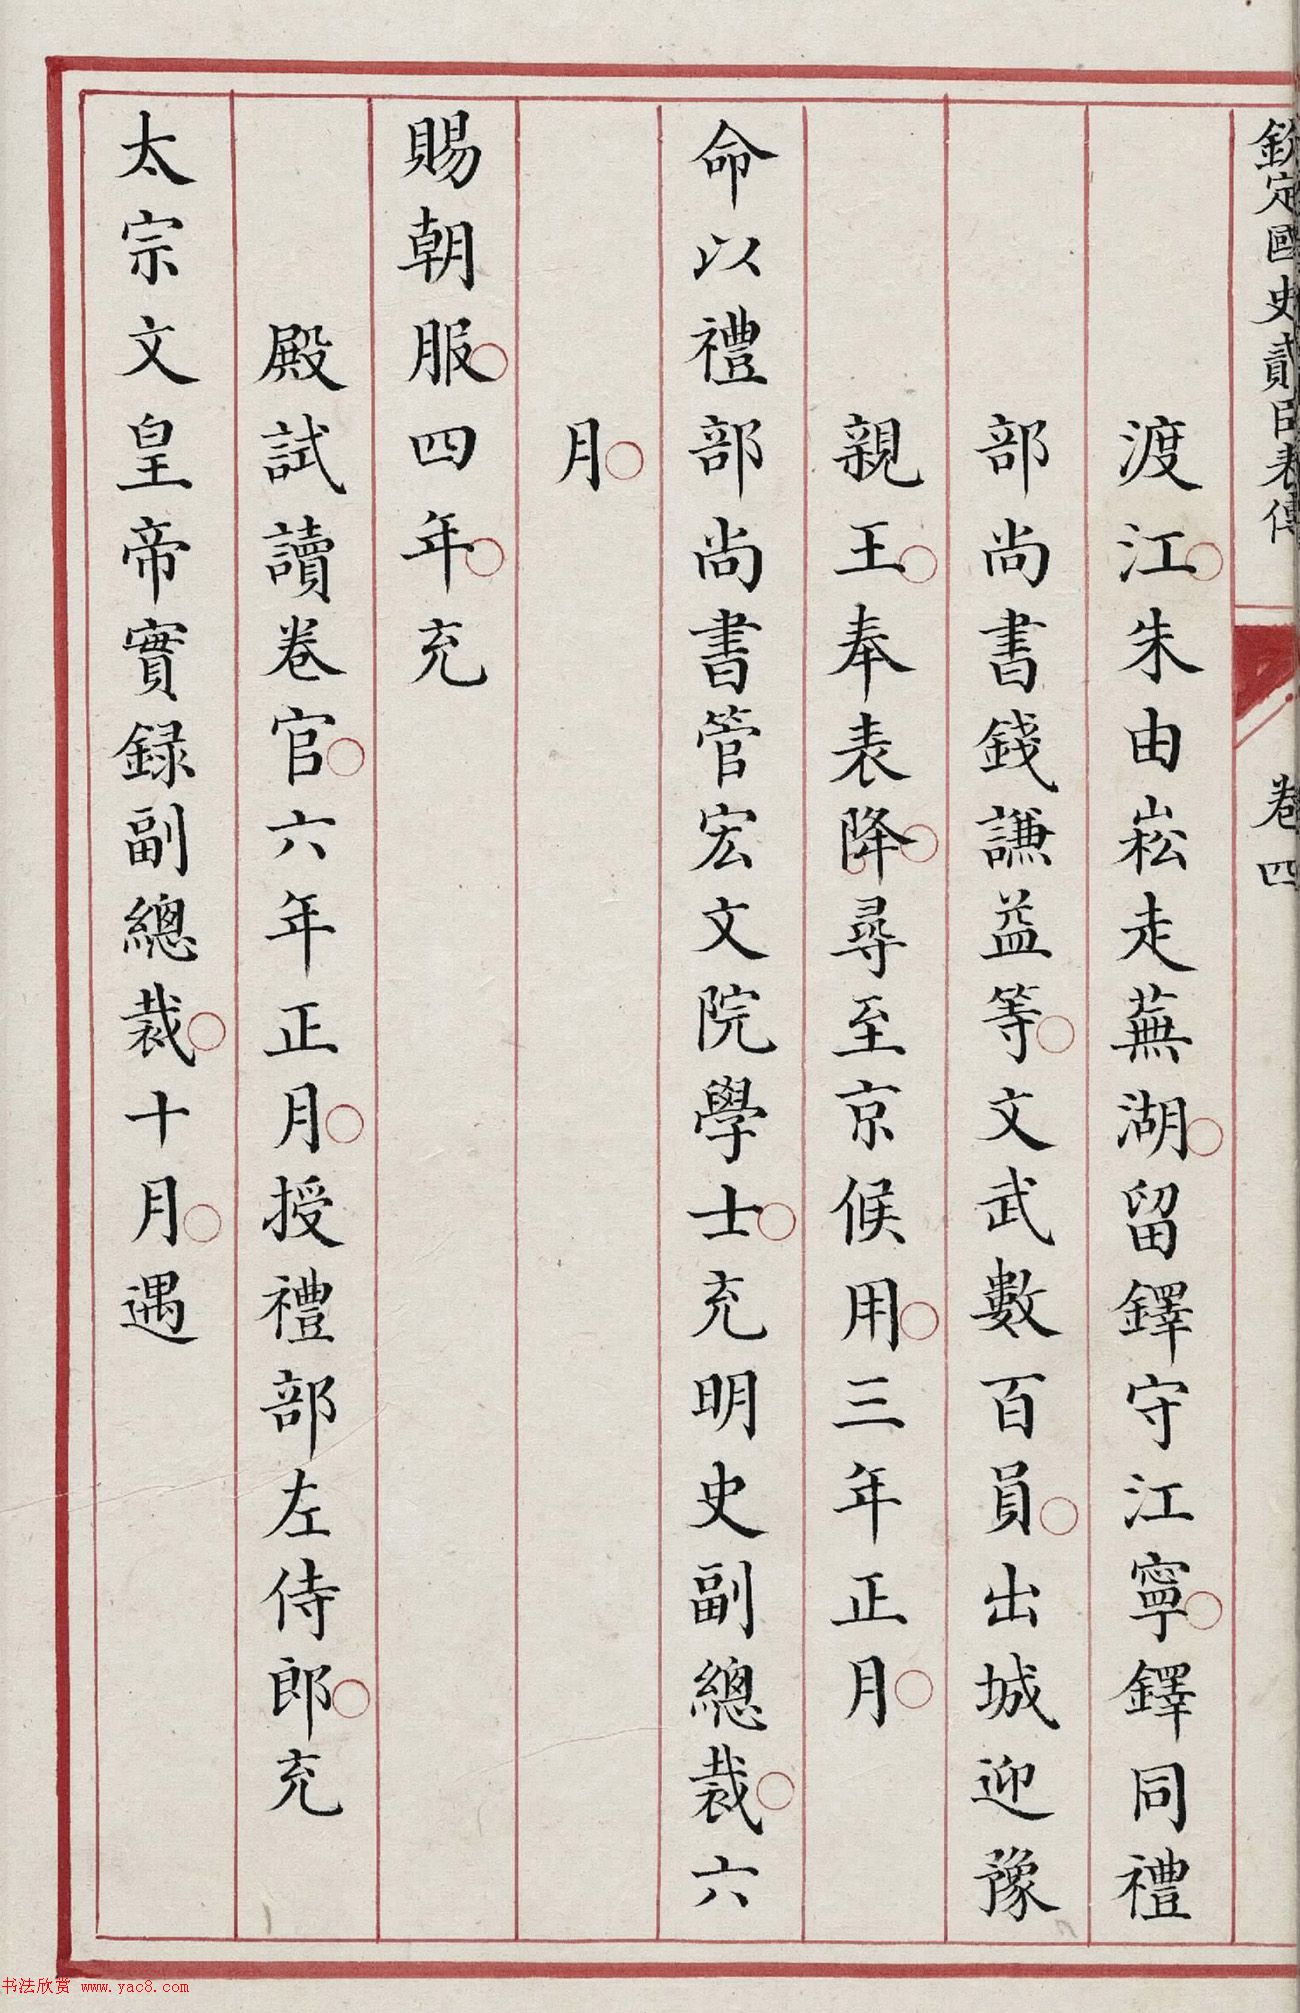 欽定國史貳臣表傳 卷四
渡江朱由崧走蕪湖留鐸守江寧鐸同禮
部尚書錢謙益等文武數百員出城迎豫
親王奉表降尋至京候用三年正月
命以禮部尚書管宏文院學士充明史副總裁六
月
賜朝服四年充
殿試讀卷官六年正月授禮部左侍郎充
太宗文皇帝實録副總裁十月遇
书法欣赏 www.yac8.com